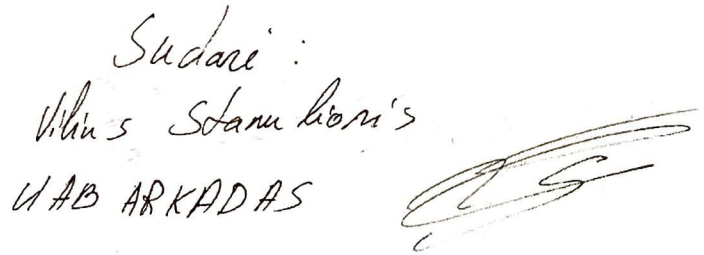 Sudarė :
Vilius Stanulionis
UAB ARKADAS